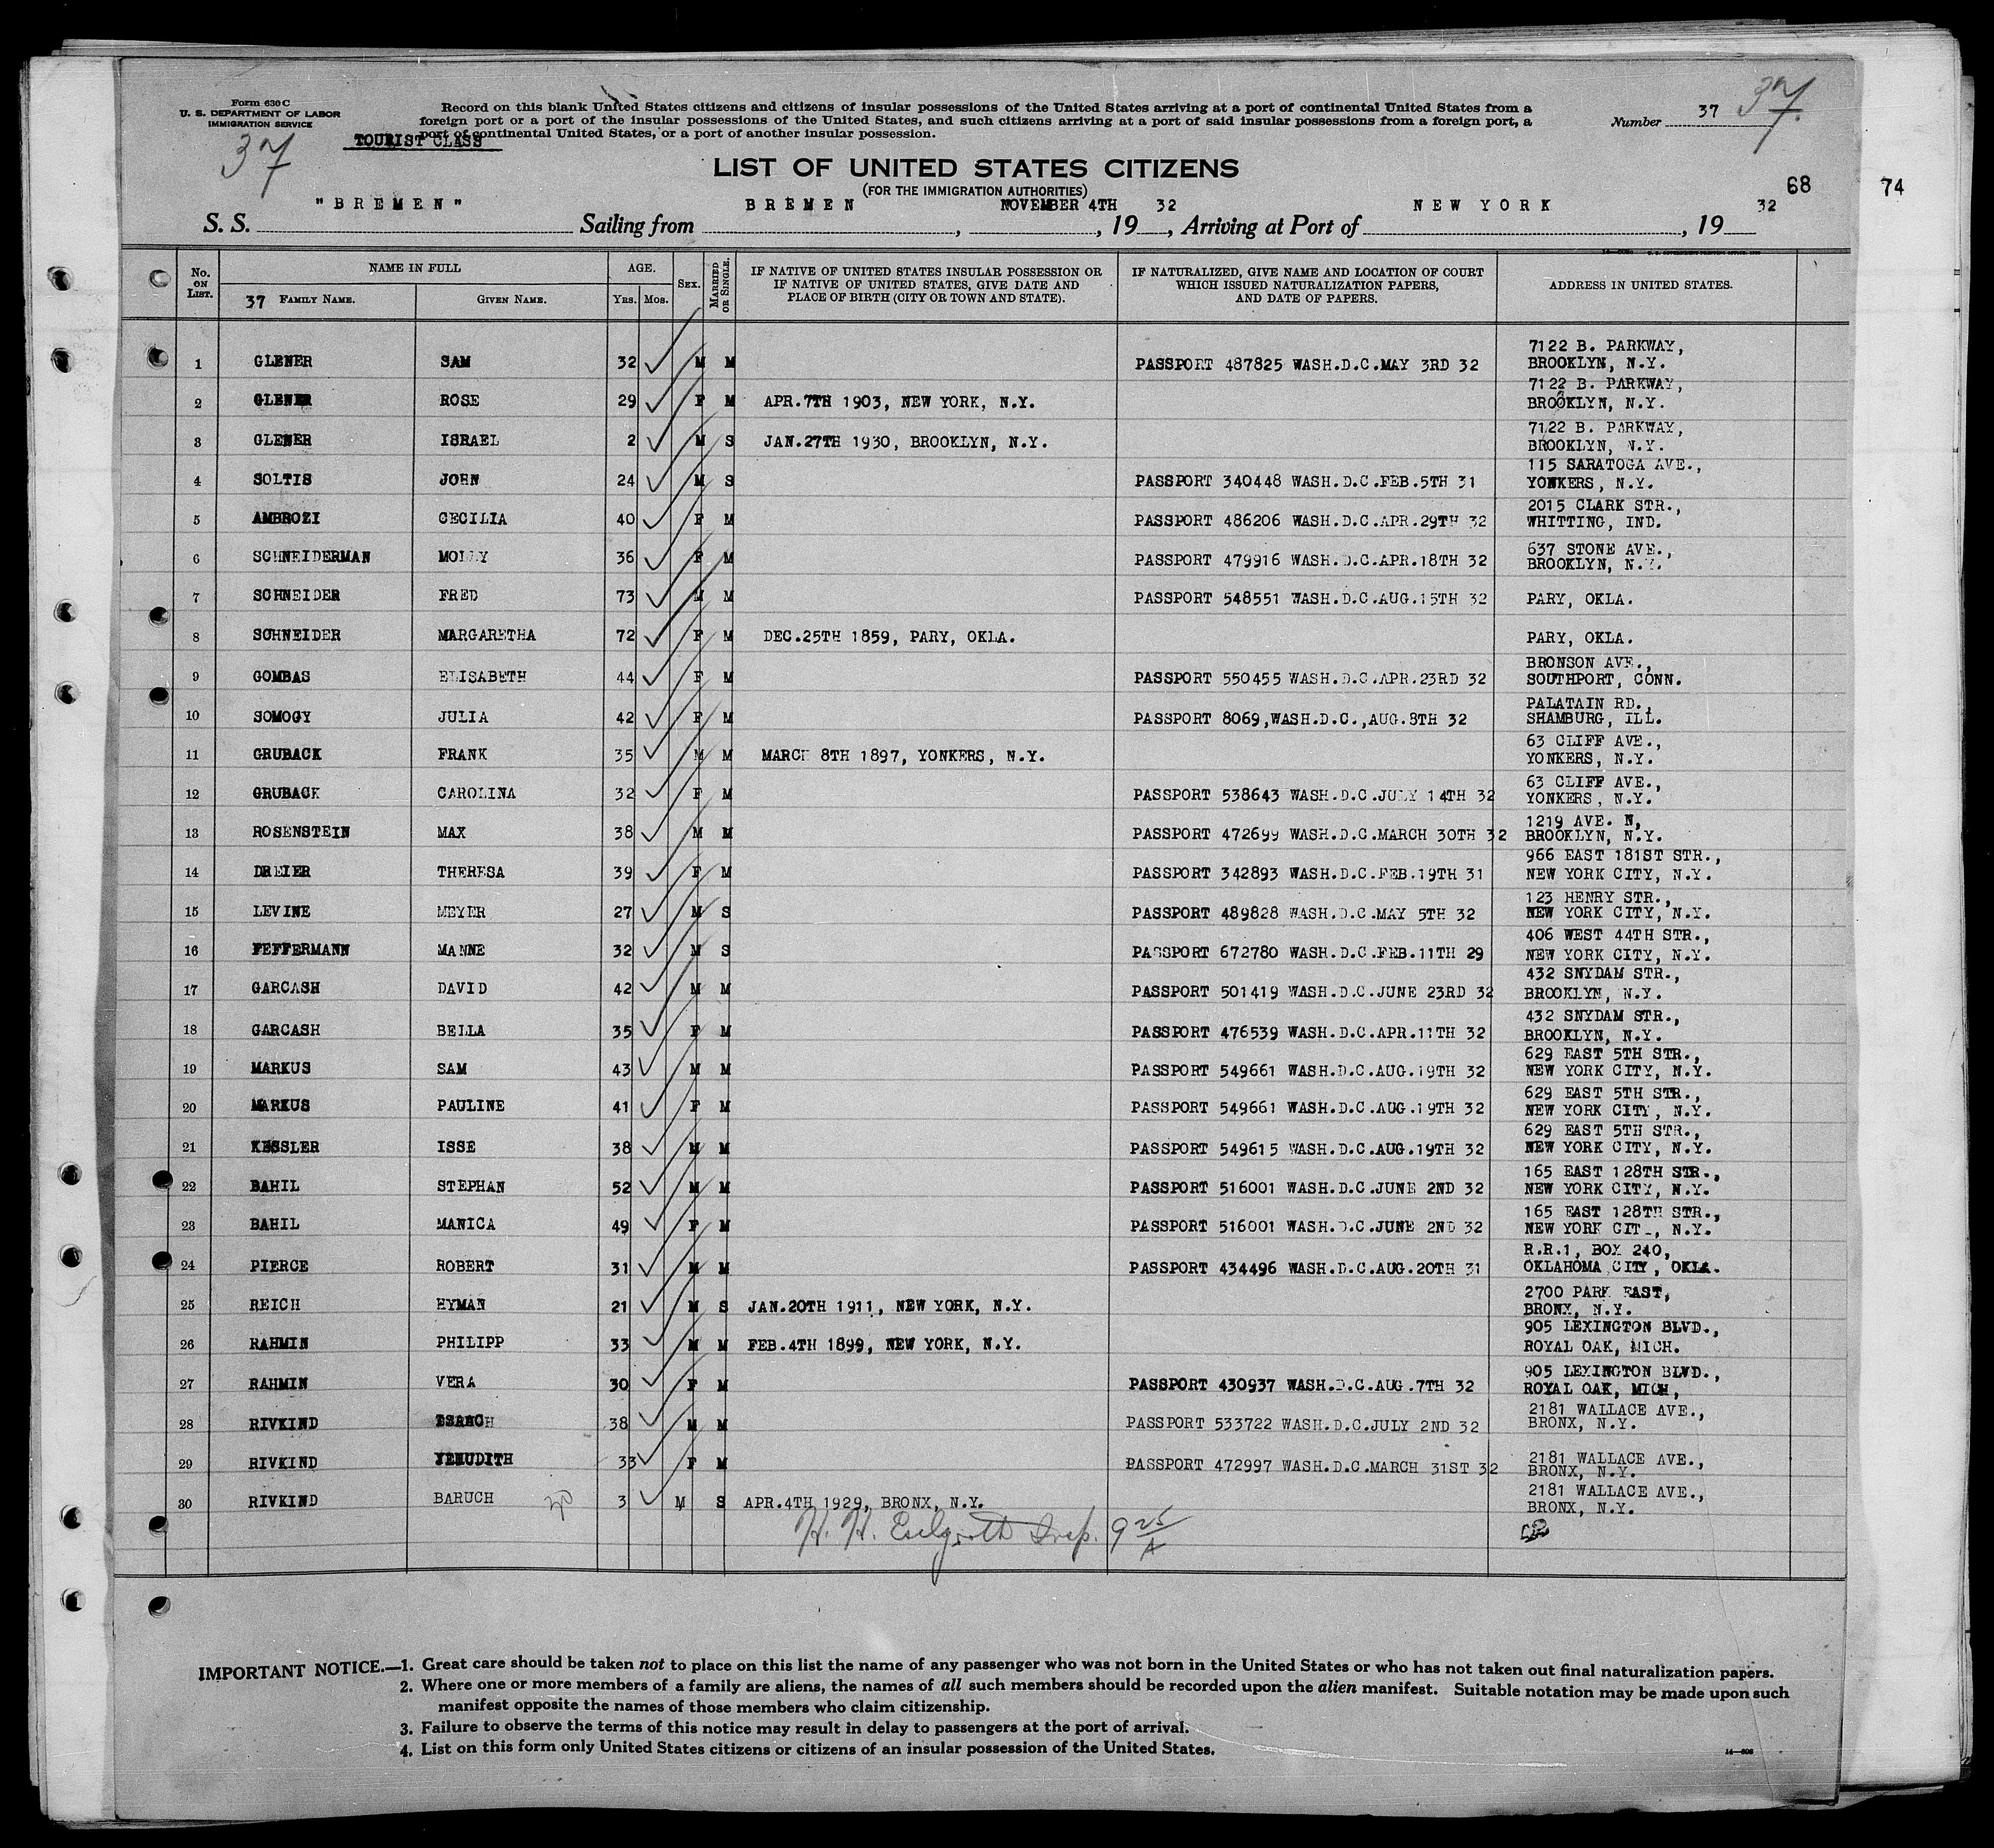 Form 630 C
U. S. DEPARTMENT OF LABOR
IMMIGRATION SERVICE
Record on this blank United States citizens and citizens of insular possessions of the United States arriving at a port of continental United States from a
foreign port or a port of the insular possessions of the United States, and such citizens arriving at a port of said insular possessions from a foreign port, a
port of continental United States, or a port of another insular possession.
TOURIST CLASS
37
Number 37 37
LIST OF UNITED STATES CITIZENS
(FOR THE IMMIGRATION AUTHORITIES)
68 74
S. S. "BREMEN" Sailing from BREMEN, NOVEMBER 4TH, 19 32, Arriving at Port of NEW YORK, 19 32
No. ON LIST. NAME IN FULL AGE. SEX. MARRIED OR SINGLE. IF NATIVE OF UNITED STATES INSULAR POSSESSION OR IF NATIVE OF UNITED STATES, GIVE DATE AND PLACE OF BIRTH (CITY OR TOWN AND STATE). IF NATURALIZED, GIVE NAME AND LOCATION OF COURT WHICH ISSUED NATURALIZATION PAPERS, AND DATE OF PAPERS. ADDRESS IN UNITED STATES.
37 FAMILY NAME. GIVEN NAME. YRS. MOS.
1 GLENER SAM 32 M M PASSPORT 487825 WASH.D.C.MAY 3RD 32 7122 B. PARKWAY, BROOKLYN, N.Y.
2 GLENER ROSE 29 F M APR.7TH 1903, NEW YORK, N.Y. 7122 B. PARKWAY, BROOKLYN, N.Y.
3 GLENER ISRAEL 2 M S JAN.27TH 1930, BROOKLYN, N.Y. 7122 B. PARKWAY, BROOKLYN, N.Y.
4 SOLTIS JOHN 24 M S PASSPORT 340448 WASH.D.C.FEB.5TH 31 115 SARATOGA AVE., YONKERS, N.Y.
5 AMBROZI CECILIA 40 F M PASSPORT 486206 WASH.D.C.APR.29TH 32 2015 CLARK STR., WHITTING, IND.
6 SCHNEIDERMAN MOLLY 36 F M PASSPORT 479916 WASH.D.C.APR.18TH 32 637 STONE AVE., BROOKLYN, N.Y.
7 SCHNEIDER FRED 73 M M PASSPORT 548551 WASH.D.C.AUG.15TH 32 PARY, OKLA.
8 SCHNEIDER MARGARETHA 72 F M DEC.25TH 1859, PARY, OKLA. PARY, OKLA.
9 GOMBAS ELISABETH 44 F M PASSPORT 550455 WASH.D.C.APR.23RD 32 BRONSON AVE., SOUTHPORT, CONN.
10 SOMOGY JULIA 42 F M PASSPORT 8069,WASH.D.C.,AUG.8TH 32 PALATAIN RD., SHAMBURG, ILL.
11 GRUBACK FRANK 35 M M MARCH 8TH 1897, YONKERS, N.Y. 63 CLIFF AVE., YONKERS, N.Y.
12 GRUBACK CAROLINA 32 F M PASSPORT 538643 WASH.D.C.JULY 14TH 32 63 CLIFF AVE., YONKERS, N.Y.
13 ROSENSTEIN MAX 38 M M PASSPORT 472699 WASH.D.C.MARCH 30TH 32 1219 AVE. N, BROOKLYN, N.Y.
14 DREIER THERESA 39 F M PASSPORT 342893 WASH.D.C.FEB.19TH 31 966 EAST 181ST STR., NEW YORK CITY, N.Y.
15 LEVINE MEYER 27 M S PASSPORT 489828 WASH.D.C.MAY 5TH 32 123 HENRY STR., NEW YORK CITY, N.Y.
16 FEFFERMANN MANNE 32 M S PASSPORT 672780 WASH.D.C.FEB.11TH 29 406 WEST 44TH STR., NEW YORK CITY, N.Y.
17 GARCASH DAVID 42 M M PASSPORT 501419 WASH.D.C.JUNE 23RD 32 432 SNYDAM STR., BROOKLYN, N.Y.
18 GARCASH BELLA 35 F M PASSPORT 476539 WASH.D.C.APR.11TH 32 432 SNYDAM STR., BROOKLYN, N.Y.
19 MARKUS SAM 43 M M PASSPORT 549661 WASH.D.C.AUG.19TH 32 629 EAST 5TH STR., NEW YORK CITY, N.Y.
20 MARKUS PAULINE 41 F M PASSPORT 549661 WASH.D.C.AUG.19TH 32 629 EAST 5TH STR., NEW YORK CITY, N.Y.
21 KESSLER ISSE 38 M M PASSPORT 549615 WASH.D.C.AUG.19TH 32 629 EAST 5TH STR., NEW YORK CITY, N.Y.
22 BAHIL STEPHAN 52 M M PASSPORT 516001 WASH.D.C.JUNE 2ND 32 165 EAST 128TH STR., NEW YORK CITY, N.Y.
23 BAHIL MANICA 49 F M PASSPORT 516001 WASH.D.C.JUNE 2ND 32 165 EAST 128TH STR., NEW YORK CIT , N.Y.
24 PIERCE ROBERT 31 M M PASSPORT 434496 WASH.D.C.AUG.20TH 31 R.R.1, BOX 240, OKLAHOMA CITY, OKLA.
25 REICH HYMAN 21 M S JAN.20TH 1911, NEW YORK, N.Y. 2700 PARK EAST, BRONX, N.Y.
26 RAHMIN PHILIPP 33 M M FEB.4TH 1899, NEW YORK, N.Y. 905 LEXINGTON BLVD., ROYAL OAK, MICH.
27 RAHMIN VERA 30 F M PASSPORT 430937 WASH.D.C.AUG.7TH 32 905 LEXINGTON BLVD., ROYAL OAK, MICH,
28 RIVKIND 38 M M PASSPORT 533722 WASH.D.C.JULY 2ND 32 2181 WALLACE AVE., BRONX, N.Y.
29 RIVKIND YEHUDITH 33 F M PASSPORT 472997 WASH.D.C.MARCH 31ST 32 2181 WALLACE AVE., BRONX, N.Y.
30 RIVKIND BARUCH 3 M S APR.4TH 1929, BRONX, N.Y. 2181 WALLACE AVE., BRONX, N.Y.
H. H. Insp. 9 25/A
IMPORTANT NOTICE.—1. Great care should be taken not to place on this list the name of any passenger who was not born in the United States or who has not taken out final naturalization papers.
2. Where one or more members of a family are aliens, the names of all such members should be recorded upon the alien manifest. Suitable notation may be made upon such
manifest opposite the names of those members who claim citizenship.
3. Failure to observe the terms of this notice may result in delay to passengers at the port of arrival.
4. List on this form only United States citizens or citizens of an insular possession of the United States.